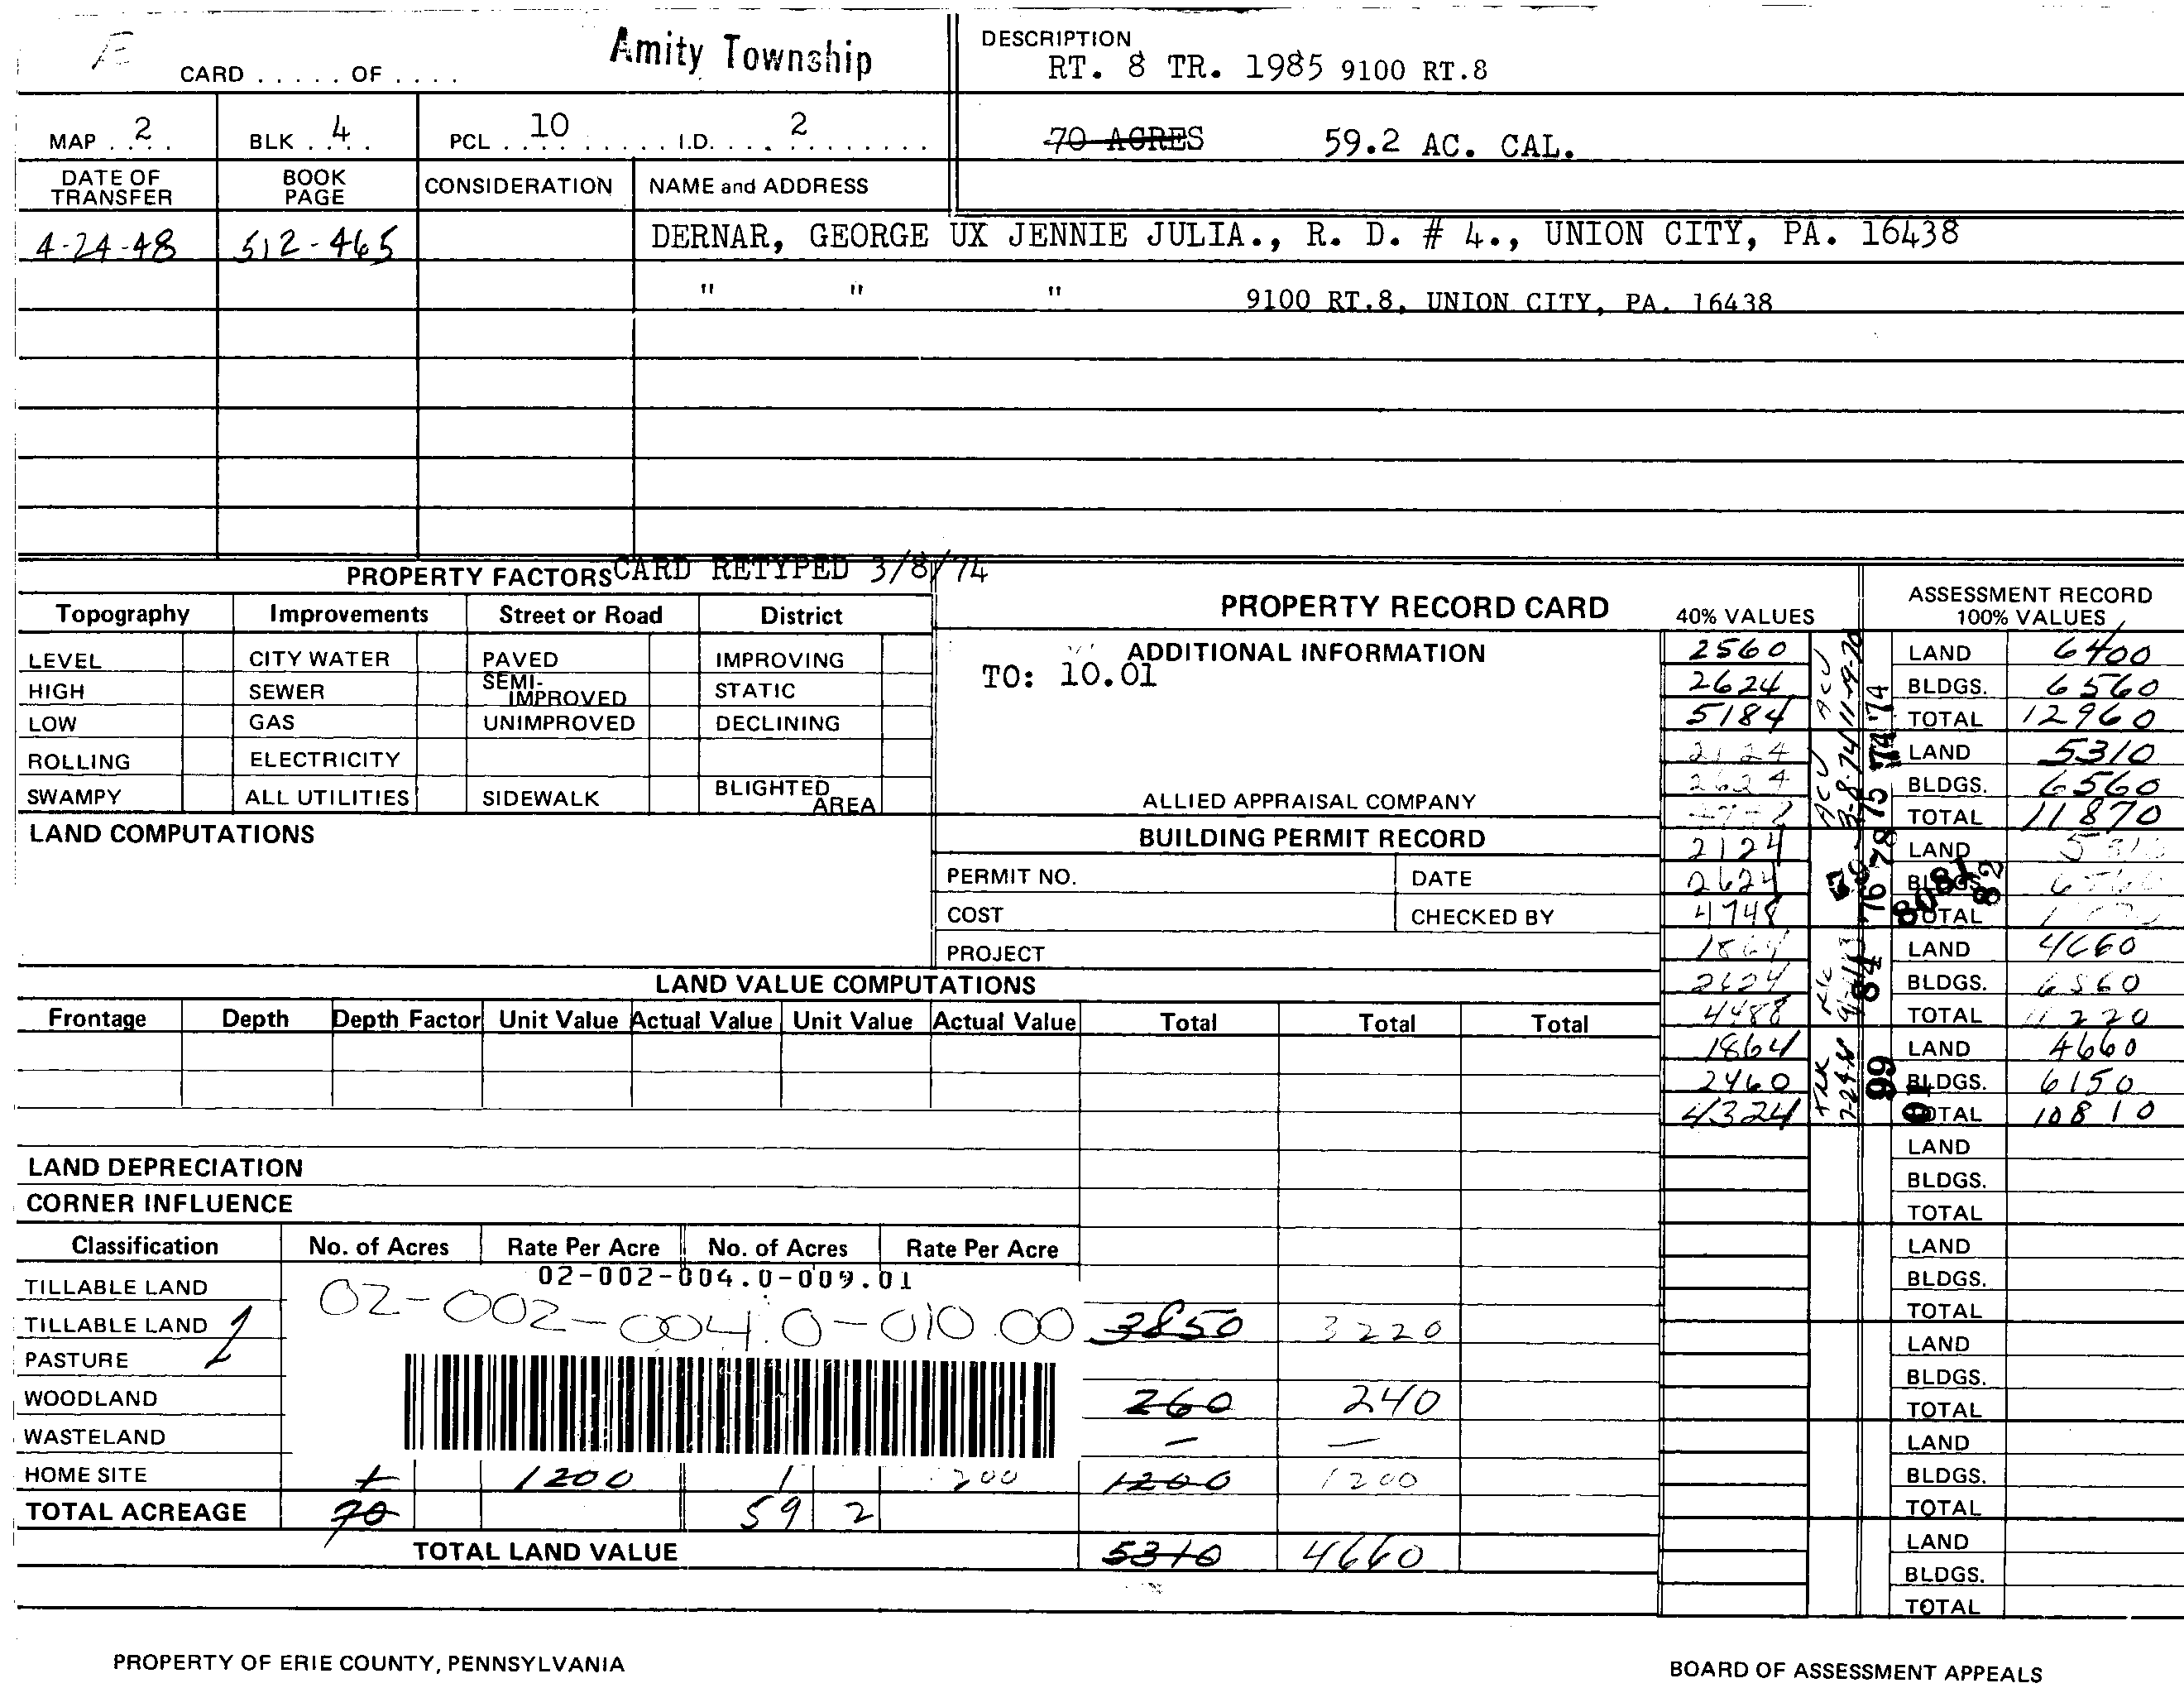 Amity Township
CARD . . . . . OF . . . .
DESCRIPTION
RT. 8 TR. 1985 9100 RT.8
MAP . 2 . . BLK . 4 . . PCL . . 10 . . . . . I.D. . . . 2 . . . . .
70 ACRES 59.2 AC. CAL.
DATE OF TRANSFER BOOK PAGE CONSIDERATION NAME and ADDRESS
4-24-48 512-465 DERNAR, GEORGE UX JENNIE JULIA., R. D. # 4., UNION CITY, PA. 16438
" " " 9100 RT.8, UNION CITY, PA. 16438
PROPERTY FACTORS CARD RETYPED 3/8/74
Topography Improvements Street or Road District
LEVEL CITY WATER PAVED IMPROVING
HIGH SEWER SEMI-IMPROVED STATIC
LOW GAS UNIMPROVED DECLINING
ROLLING ELECTRICITY
SWAMPY ALL UTILITIES SIDEWALK BLIGHTED AREA
LAND COMPUTATIONS
PROPERTY RECORD CARD
ADDITIONAL INFORMATION
TO: 10.01
ALLIED APPRAISAL COMPANY
BUILDING PERMIT RECORD
PERMIT NO. DATE
COST CHECKED BY
PROJECT
40% VALUES ASSESSMENT RECORD
100% VALUES
2560 LAND 6400
2624 BLDGS. 6560
5184 TOTAL 12960
2124 LAND 5310
2624 BLDGS. 6560
TOTAL 11870
2124 LAND 5310
2624 BLDGS. 6560
4748 TOTAL
1864 LAND 4660
2624 BLDGS. 6560
4488 TOTAL 11220
1864 LAND 4660
2460 BLDGS. 6150
4324 TOTAL 10810
LAND
BLDGS.
TOTAL
LAND
BLDGS.
TOTAL
LAND
BLDGS.
TOTAL
LAND
BLDGS.
TOTAL
LAND
BLDGS.
TOTAL
ACU 11-19-70
ACU 3-8-74
74 '74 75 '76 78 8081 82 84 99 01
LAND VALUE COMPUTATIONS
Frontage Depth Depth Factor Unit Value Actual Value Unit Value Actual Value Total Total Total
LAND DEPRECIATION
CORNER INFLUENCE
Classification No. of Acres Rate Per Acre No. of Acres Rate Per Acre
02-002-004.0-009.01
TILLABLE LAND 02-002-004.0-010.00
TILLABLE LAND 3850 3220
PASTURE
WOODLAND 260 240
WASTELAND — —
HOME SITE 1 1200 1 1200 1200 1200
TOTAL ACREAGE 70 59 2
TOTAL LAND VALUE 5310 4660
PROPERTY OF ERIE COUNTY, PENNSYLVANIA
BOARD OF ASSESSMENT APPEALS